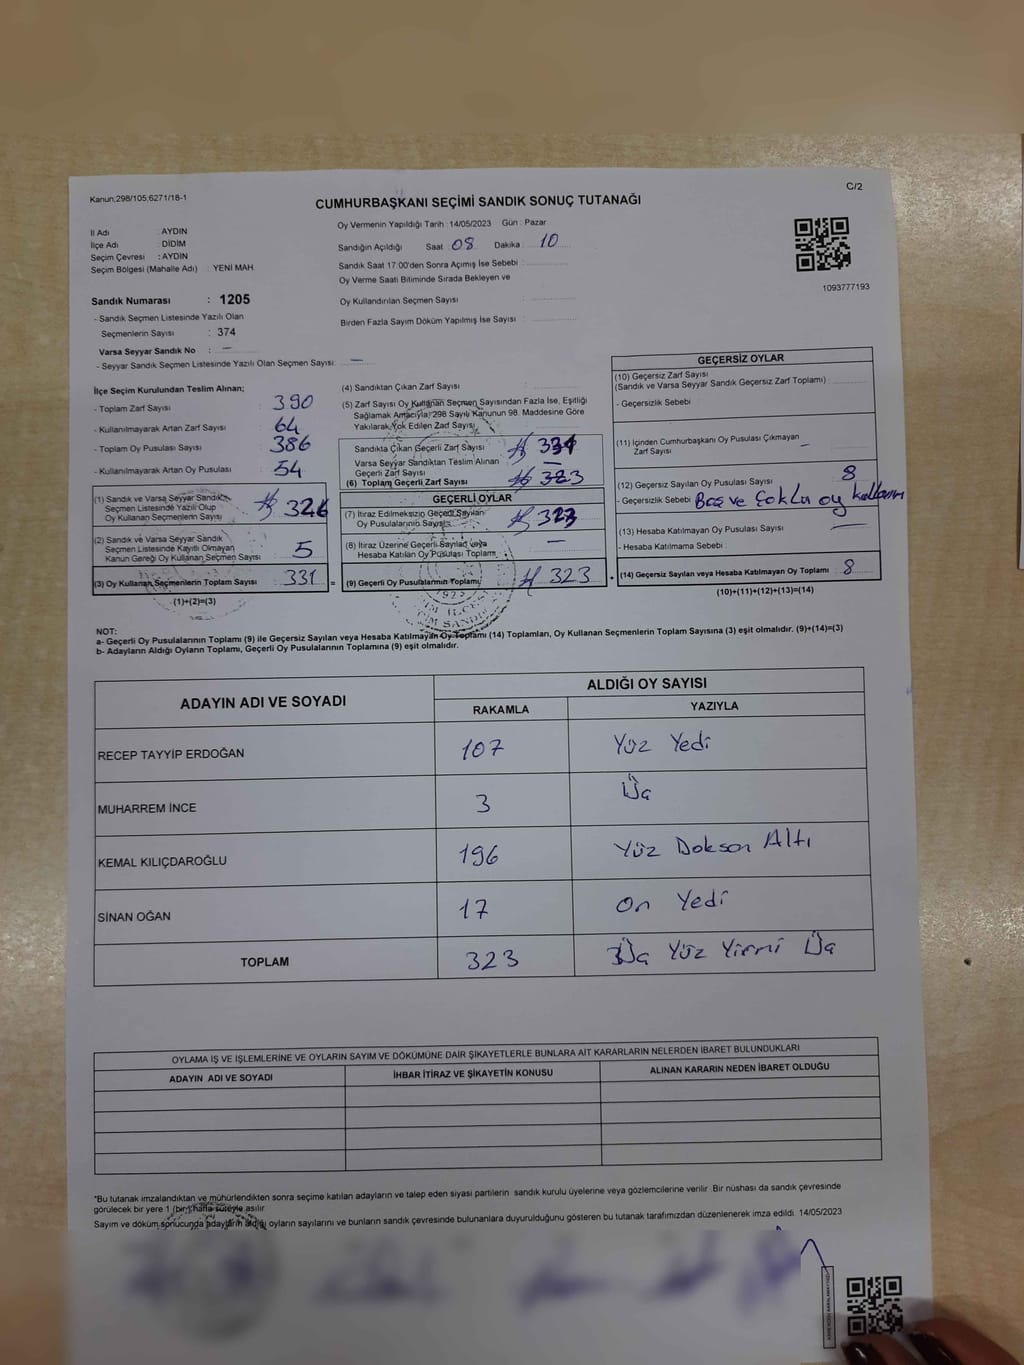 Kanun;298/105;6271/18-1
C/2
CUMHURBAŞKANI SEÇİMİ SANDIK SONUÇ TUTANAĞI
İl Adı : AYDIN
İlçe Adı : DİDİM
Seçim Çevresi : AYDIN
Seçim Bölgesi (Mahalle Adı) : YENİ MAH.
Oy Vermenin Yapıldığı Tarih : 14/05/2023 Gün : Pazar
Sandığın Açıldığı Saat 08 Dakika : 10
Sandık Saat 17:00'den Sonra Açımış İse Sebebi :
Oy Verme Saati Bitiminde Sırada Bekleyen ve
Oy Kullandırılan Seçmen Sayısı :
Birden Fazla Sayım Döküm Yapılmış İse Sayısı :
1093777193
Sandık Numarası : 1205
- Sandık Seçmen Listesinde Yazılı Olan
Seçmenlerin Sayısı : 374
Varsa Seyyar Sandık No : -
- Seyyar Sandık Seçmen Listesinde Yazılı Olan Seçmen Sayısı: -
İlçe Seçim Kurulundan Teslim Alınan;
- Toplam Zarf Sayısı 390
- Kullanılmayarak Artan Zarf Sayısı : 64
- Toplam Oy Pusulası Sayısı 386
- Kullanılmayarak Artan Oy Pusulası 54
(1) Sandık ve Varsa Seyyar Sandık
Seçmen Listesinde Yazılı Olup
Oy Kullanan Seçmenlerin Sayısı 326
(2) Sandık ve Varsa Seyyar Sandık
Seçmen Listesinde Kayıtlı Olmayan
Kanun Gereği Oy Kullanan Seçmen Sayısı 5
(3) Oy Kullanan Seçmenlerin Toplam Sayısı 331 =
(1)+(2)=(3)
(4) Sandıktan Çıkan Zarf Sayısı :
(5) Zarf Sayısı Oy Kullanan Seçmen Sayısından Fazla İse, Eşitliği
Sağlamak Amacıyla 298 Sayılı Kanunun 98. Maddesine Göre
Yakılarak Yok Edilen Zarf Sayısı
Sandıkta Çıkan Geçerli Zarf Sayısı 331
Varsa Seyyar Sandıktan Teslim Alınan
Geçerli Zarf Sayısı -
(6) Toplam Geçerli Zarf Sayısı 323
GEÇERLİ OYLAR
(7) İtiraz Edilmeksizin Geçerli Sayılan
Oy Pusulalarının Sayısı 323
(8) İtiraz Üzerine Geçerli Sayılan veya
Hesaba Katılan Oy Pusulası Toplamı -
(9) Geçerli Oy Pusulalarının Toplamı 323 +
GEÇERSİZ OYLAR
(10) Geçersiz Zarf Sayısı
(Sandık ve Varsa Seyyar Sandık Geçersiz Zarf Toplamı)
- Geçersizlik Sebebi
(11) İçinden Cumhurbaşkanı Oy Pusulası Çıkmayan
Zarf Sayısı -
(12) Geçersiz Sayılan Oy Pusulası Sayısı 8
- Geçersizlik Sebebi Boş ve Çoklu oy kullanımı
(13) Hesaba Katılmayan Oy Pusulası Sayısı -
- Hesaba Katılmama Sebebi
(14) Geçersiz Sayılan veya Hesaba Katılmayan Oy Toplamı 8
(10)+(11)+(12)+(13)=(14)
NOT:
a- Geçerli Oy Pusulalarının Toplamı (9) ile Geçersiz Sayılan veya Hesaba Katılmayan Oy Toplamı (14) Toplamları, Oy Kullanan Seçmenlerin Toplam Sayısına (3) eşit olmalıdır. (9)+(14)=(3)
b- Adayların Aldığı Oyların Toplamı, Geçerli Oy Pusulalarının Toplamına (9) eşit olmalıdır.
ADAYIN ADI VE SOYADI
ALDIĞI OY SAYISI
RAKAMLA YAZIYLA
RECEP TAYYİP ERDOĞAN 107 Yüz Yedi
MUHARREM İNCE 3 Üç
KEMAL KILIÇDAROĞLU 196 Yüz Doksan Altı
SİNAN OĞAN 17 On Yedi
TOPLAM 323 Üç Yüz Yirmi Üç
OYLAMA İŞ VE İŞLEMLERİNE VE OYLARIN SAYIM VE DÖKÜMÜNE DAİR ŞİKAYETLERLE BUNLARA AİT KARARLARIN NELERDEN İBARET BULUNDUKLARI
ADAYIN ADI VE SOYADI İHBAR İTİRAZ VE ŞİKAYETİN KONUSU ALINAN KARARIN NEDEN İBARET OLDUĞU
*Bu tutanak imzalandıktan ve mühürlendikten sonra seçime katılan adayların ve talep eden siyasi partilerin sandık kurulu üyelerine veya gözlemcilerine verilir. Bir nüshası da sandık çevresinde
görülecek bir yere 1 (bir) hafta süreyle asılır.
Sayım ve döküm sonucunda adayların aldığı oyların sayılarını ve bunların sandık çevresinde bulunanlara duyurulduğunu gösteren bu tutanak tarafımızdan düzenlenerek imza edildi. 14/05/2023